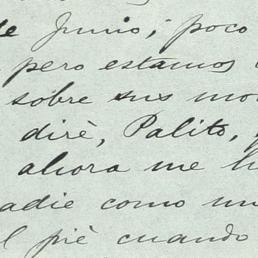 de Junio; poco
pero estamos
sobre sus mo
dirè, Palito,
ahora me h
adie como un
l piè cuando